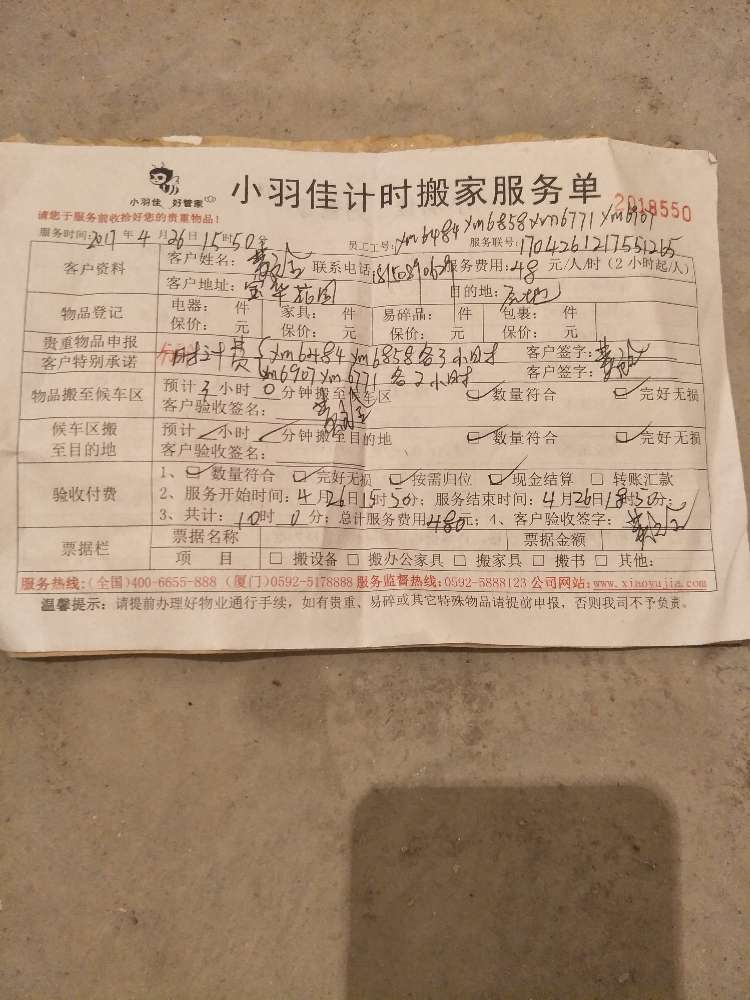 小羽佳 好管家
小羽佳计时搬家服务单
2018550
请您于服务前收拾好您的贵重物品!
服务时间:2017年4月26日15时50分 员工工号:xm6484 xm6858 xm6771 xm6907 服务联号:
客户资料 客户姓名: 联系电话: 服务费用:48元/人/时(2小时起/人)
客户地址:宝华花园 目的地:
物品登记 电器: 件 家具: 件 易碎品: 件 包裹: 件
保价: 元 保价: 元 保价: 元 保价: 元
贵重物品申报 时计费 xm6484 xm6858各3小时 客户签字:
客户特别承诺 xm6907 xm6771 各2小时 客户签字:
物品搬至候车区 预计3小时0分钟搬至候车区 数量符合 完好无损
客户验收签名:
候车区搬至目的地 预计 小时 分钟搬至目的地 数量符合 完好无损
客户验收签名:
验收付费 1、数量符合 完好无损 按需归位 现金结算 转账汇款
2、服务开始时间:4月26日15时50分; 服务结束时间:4月26日18时50分;
3、共计:10时0分;总计服务费用480元;1、客户验收签字:
票据栏 票据名称 票据金额
项 目 搬设备 搬办公家具 搬家具 搬书 其他:
服务热线:(全国)400-6655-888 (厦门)0592-5178888 服务监督热线:0592-5888123 公司网站:www.xiaoyujia.com
温馨提示:请提前办理好物业通行手续,如有贵重、易碎或其它特殊物品请提前申报,否则我司不予负责。